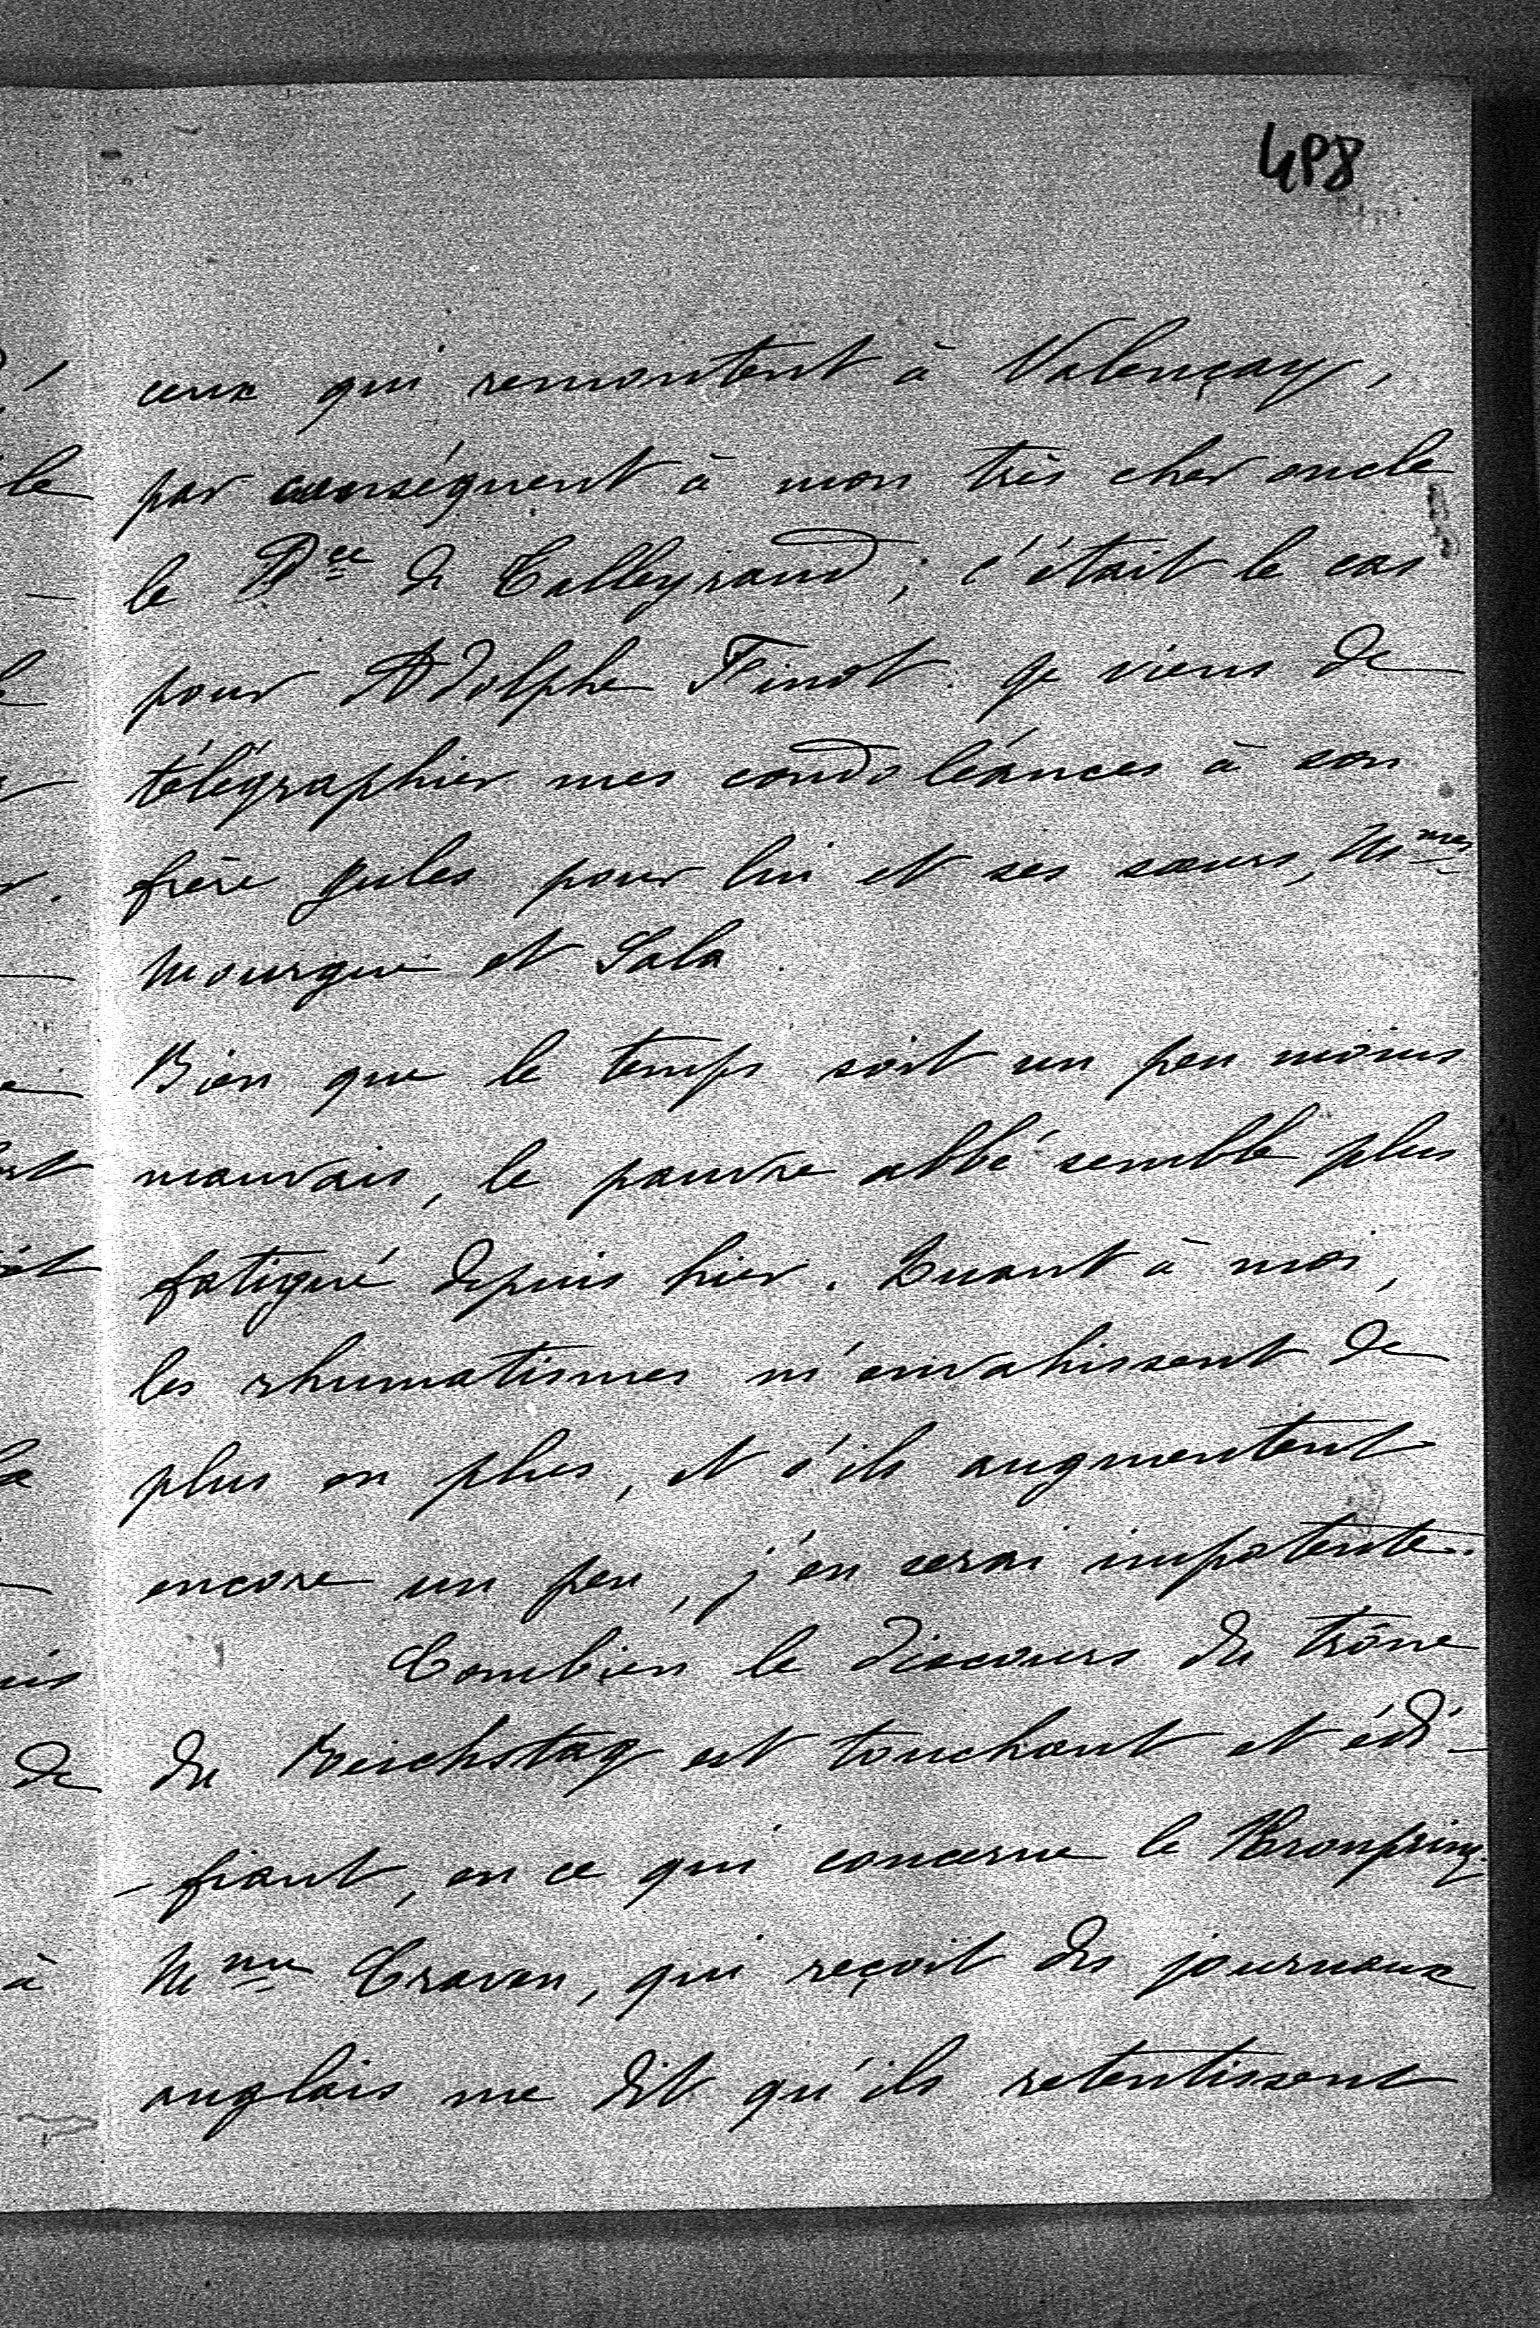 498
ceux qui remontent à Valençay,
par conséquent à mon très cher oncle
le Pce de Talleyrand ; c'était le cas
pour Adolphe Finot. Je viens de
télégraphier mes condoléances à son
frère Jules pour lui et ses sœurs, Mmes
Mourgue et Sala.
Bien que le temps soit un peu moins
mauvais, le pauvre abbé semble plus
fatigué depuis hier. Quant à moi,
les rhumatismes m'envahissent de
plus en plus, et s'ils augmentent
encore un peu, j'en serai impotente.
Combien le discours du trône
du Reichstag est touchant et édi-
-fiant, en ce qui concerne le Kronprinz.
Mme Craven, qui reçoit des journaux
anglais me dit qu'ils retentissent